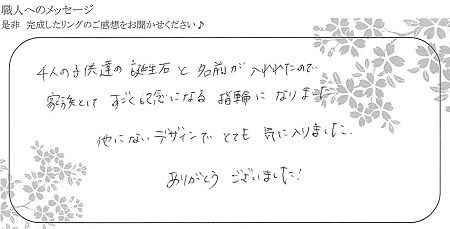 職人へのメッセージ
是非 完成したリングのご感想をお聞かせください♪
4人の子供達の誕生石と名前が入れれたので
家族として すごく記念になる 指輪に なりました
他にないデザインで とても 気に入りました。
ありがとう ございました!